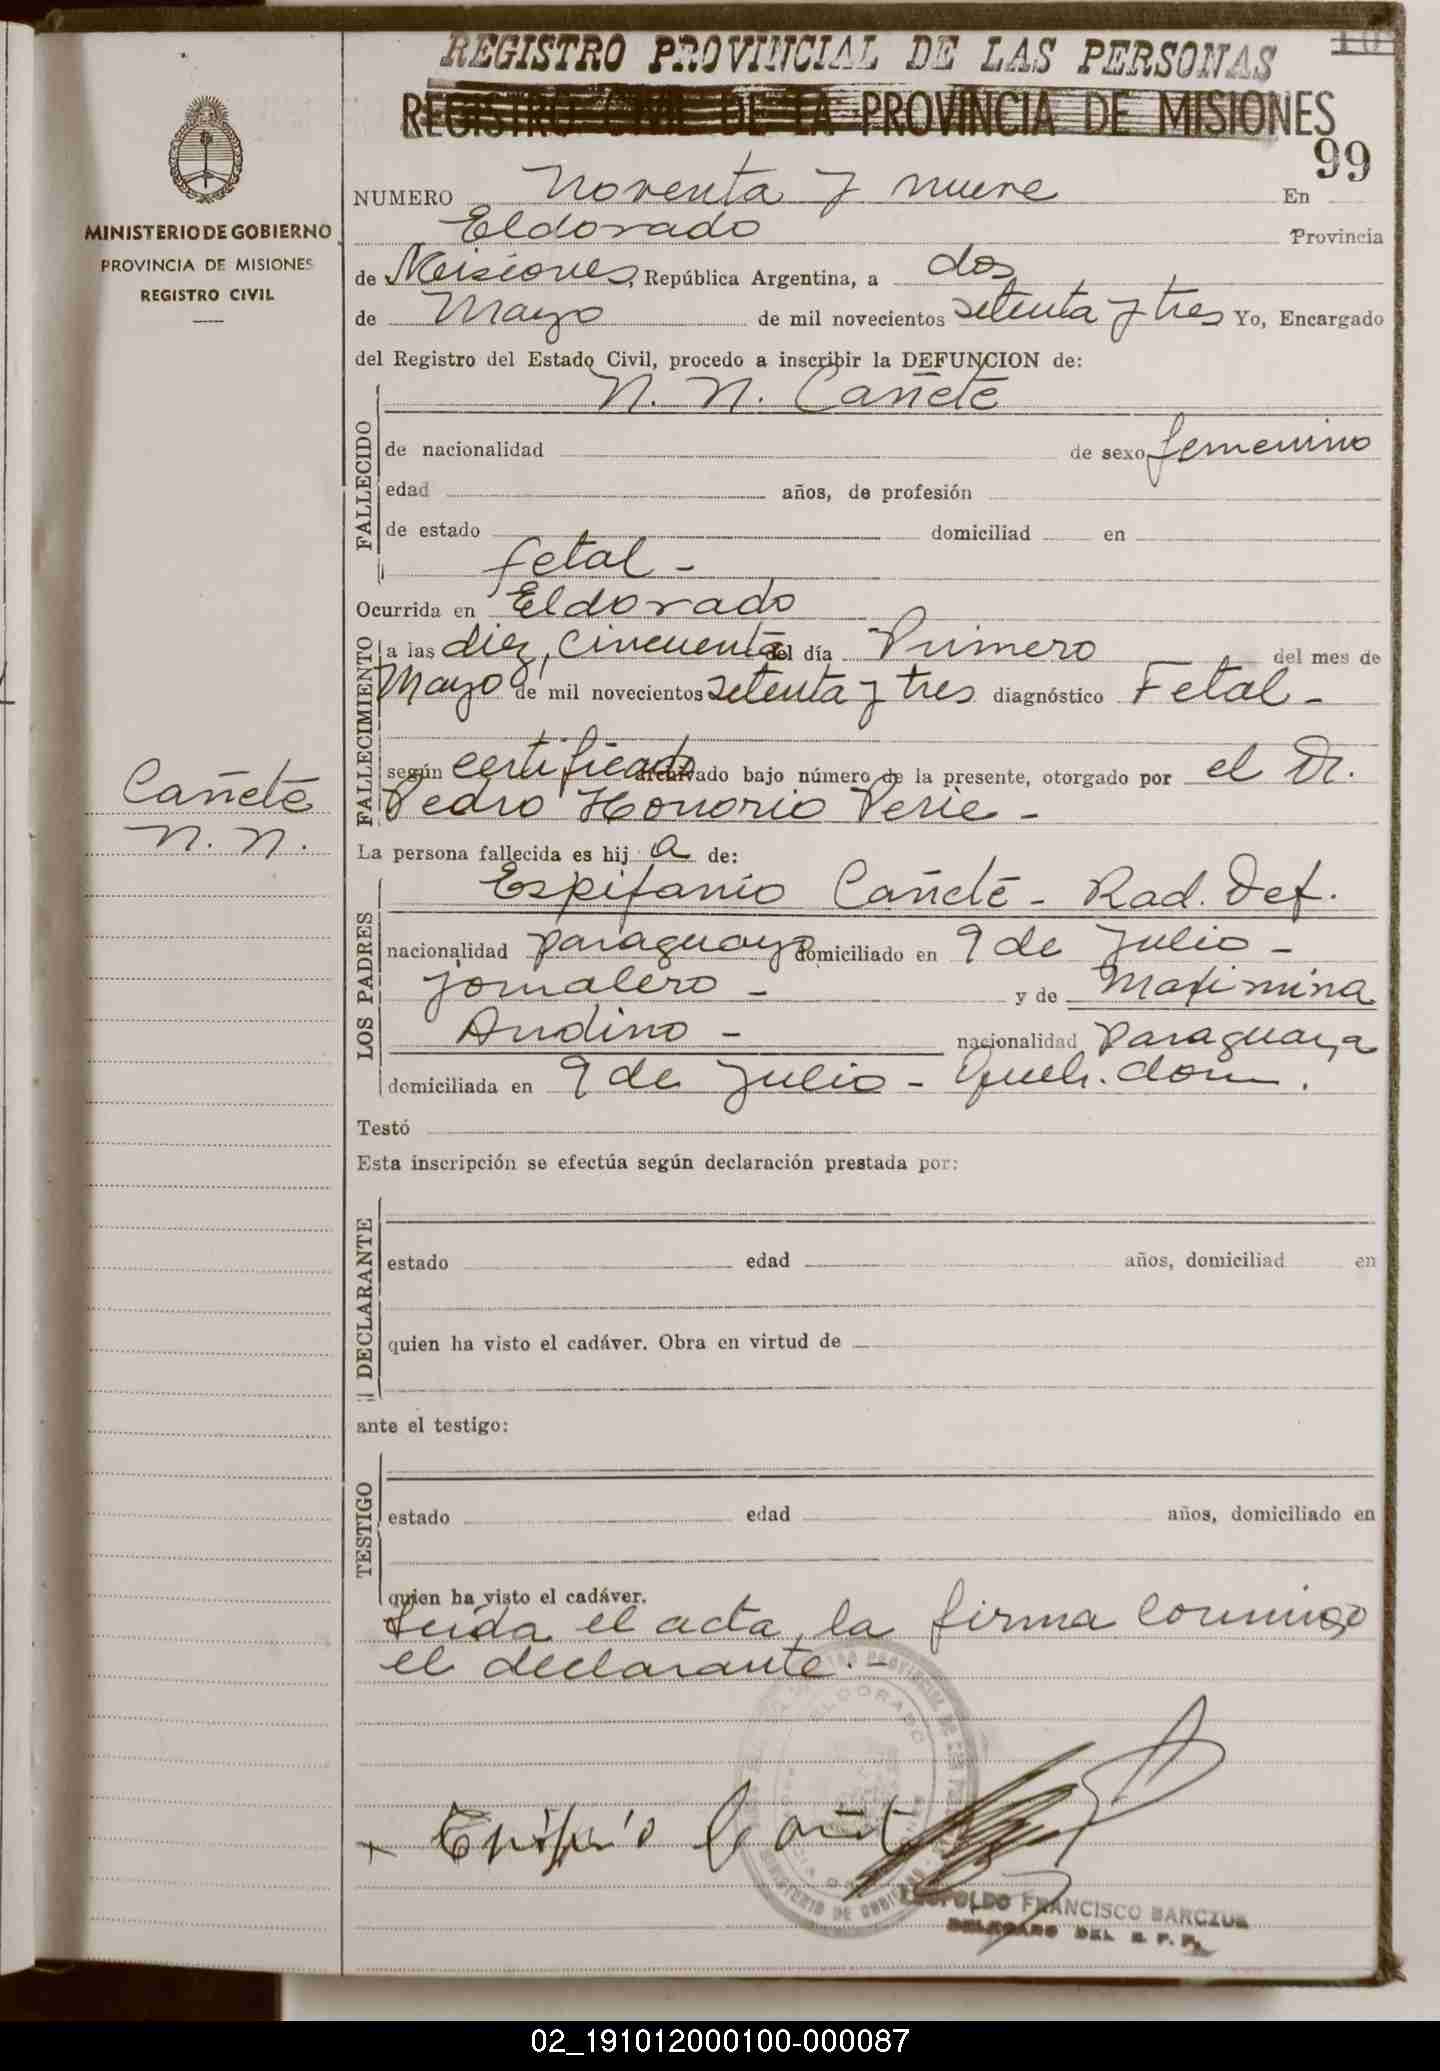 REGISTRO PROVINCIAL DE LAS PERSONAS
REGISTRO CIVIL DE LA PROVINCIA DE MISIONES
99
MINISTERIO DE GOBIERNO
PROVINCIA DE MISIONES
REGISTRO CIVIL
NUMERO Noventa y nueve En
Eldorado Provincia
de Misiones, República Argentina, a dos
de Mayo de mil novecientos setenta y tres Yo, Encargado
del Registro del Estado Civil, procedo a inscribir la DEFUNCION de:
N. N. Cañete
FALLECIDO
de nacionalidad de sexo femenino
edad años, de profesión
de estado domiciliad en
fetal -
Ocurrida en Eldorado
FALLECIMIENTO
a las diez, cincuenta del día Primero del mes de
Mayo de mil novecientos setenta y tres diagnóstico Fetal -
según certificado archivado bajo número de la presente, otorgado por el Dr.
Pedro Honorio Perie -
Cañete
N. N.
La persona fallecida es hij a de:
LOS PADRES
Espifanio Cañete - Rad. Def.
nacionalidad paraguayo domiciliado en 9 de Julio -
jornalero - y de Maximina
Andino - nacionalidad paraguaya
domiciliada en 9 de Julio - Queh. dom.
Testó
Esta inscripción se efectúa según declaración prestada por:
DECLARANTE
estado edad años, domiciliad en
quien ha visto el cadáver. Obra en virtud de
ante el testigo:
TESTIGO
estado edad años, domiciliado en
quien ha visto el cadáver.
Leída el acta, la firma conmigo
el declarante. -
ELDORADO
Cañete
LEOPOLDO FRANCISCO BARCZUK
DELEGADO DEL R. P. P.
02_191012000100-000087